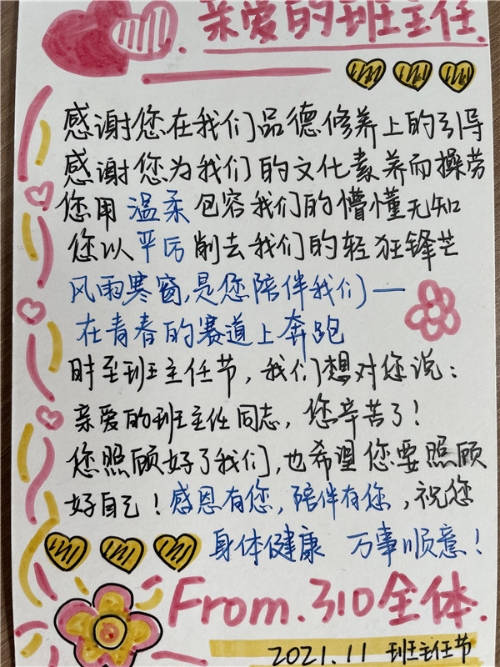 亲爱的班主任.
感谢您在我们品德修养上的引导
感谢您为我们的文化素养而操劳
您用 温柔 包容我们的懵懂无知
您以 平厉 削去我们的轻狂锋芒
风雨寒窗,是您陪伴我们一
在青春的赛道上奔跑
时至班主任节,我们想对您说:
亲爱的班主任同志,您辛苦了!
您照顾好了我们,也希望您要照顾
好自己!感恩有您,陪伴有您,祝您
身体健康 万事顺意!
From.310全体.
2021.11 班主任节